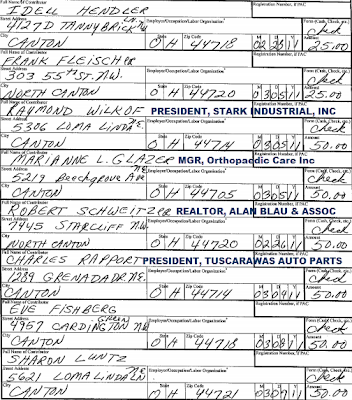 IDELL HENDLER Registration Number, if PAC
Street Address Employer/Occupation/Labor Organization Form (Cash, Check, etc.)
4127D TANNYBRICK LN. NW Check
City State Zip Code M D Y Amount
CANTON OH 44718 02 28 11 25.00
Full Name of Contributor Registration Number, if PAC
FRANK FLEISCHER
Street Address Employer/Occupation/Labor Organization Form (Cash, Check, etc.)
303 55TH ST. N.W. Check
City State Zip Code Amount
NORTH CANTON OH 44720 03 05 11 25.00
Full Name of Contributor Registration Number, if PAC
RAYMOND WILKOF PRESIDENT, STARK INDUSTRIAL, INC
Street Address Employer/Occupation/Labor Organization Form (Cash, Check, etc.)
5306 LOMA LINDA N.E. Check
City State Zip Code Amount
CANTON OH 03 05 11 50.00
Full Name of Contributor
MARIANNE L. GLAZER MGR, Orthopaedic Care Inc
Street Address Employer/Occupation/Labor Organization Form (Cash, Check, etc.)
5219 Beechgrove Ave N.E. Check
City State Zip Code Amount
CANTON OH 44705 03 05 11 50.00
Full Name of Contributor Registration Number, if PAC
ROBERT SCHWEITZER REALTOR, ALAN BLAU & ASSOC
Street Address Employer/Occupation/Labor Organization Form (Cash, Check, etc.)
7445 STARCLIFF N.W. Check
City State Zip Code Amount
NORTH CANTON OH 44720 02 26 11 50.00
Full Name of Contributor Registration Number, if PAC
CHARLES RAPPORT PRESIDENT, TUSCARAWAS AUTO PARTS
Street Address Employer/Occupation/Labor Organization Form (Cash, Check, etc.)
1289 GRENADA DR. N.E. Check
City State Zip Code Amount
CANTON OH 44714 03 09 11 50.00
Full Name of Contributor Registration Number, if PAC
EVE FISHBERG
Street Address Employer/Occupation/Labor Organization Form (Cash, Check, etc.)
4957 CARDINGTON GREEN N.W. Check
City State Zip Code Amount
CANTON OH 44718 03 08 11 50.00
Full Name of Contributor Registration Number, if PAC
SHARON LUNTZ
Street Address Employer/Occupation/Labor Organization Form (Cash, Check, etc.)
5621 LOMA LINDA LN N.E. Check
City State Zip Code Amount
CANTON OH 44721 03 09 11 50.00